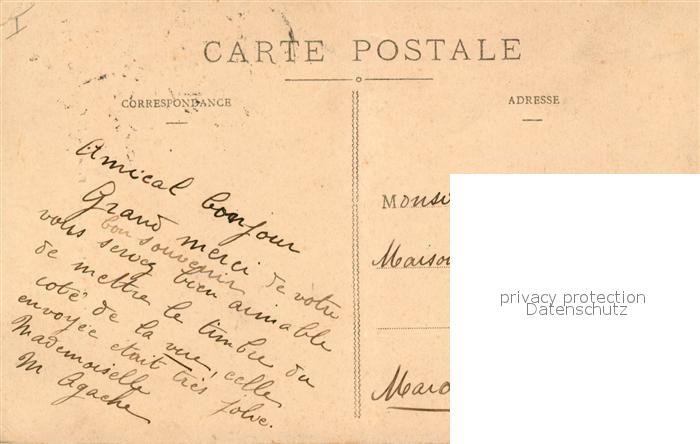 CARTE POSTALE
CORRESPONDANCE
ADRESSE
Amical bonjour
Grand merci de votre
bon souvenir
vous serez bien aimable
de mettre le timbre du
coté de la vue, celle
envoyée était très jolie.
Mademoiselle
M Agache
Monsi
Maiso
Maro
privacy protection
Datenschutz